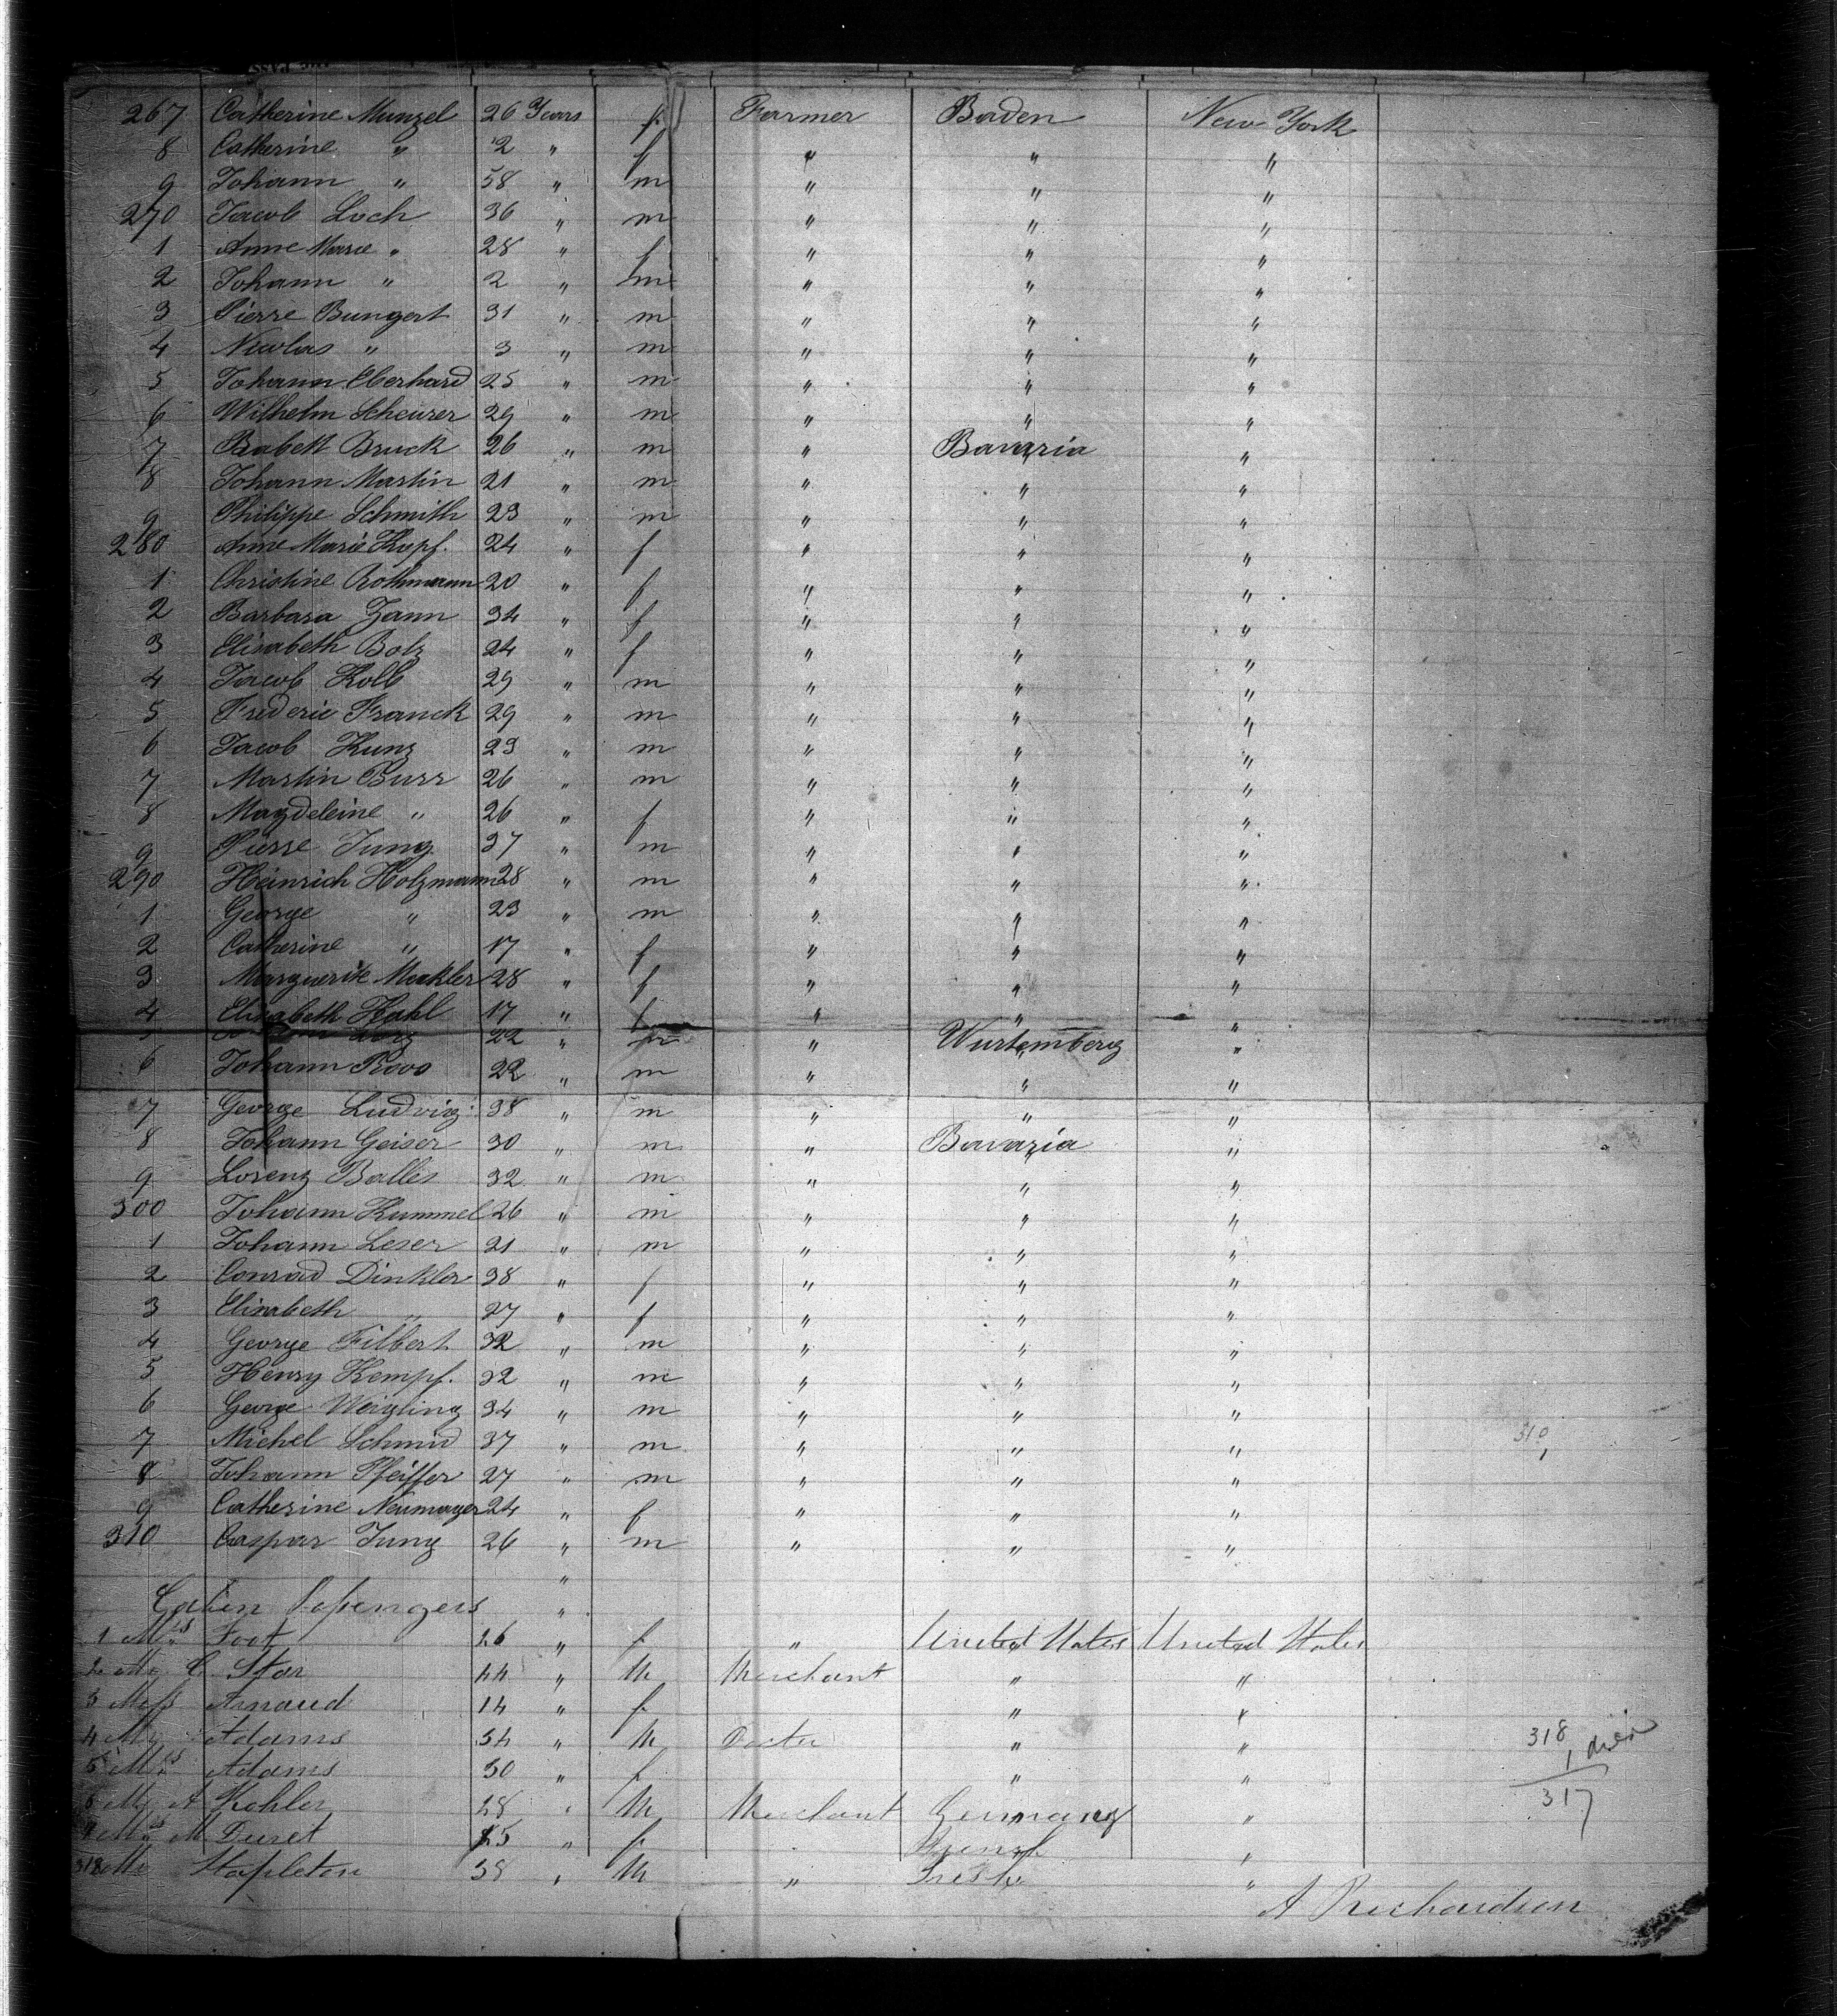 267 Catherine Munzel 26 Years f. Farmer Baden New York
8 Catherine " 2 " f " " "
9 Johann " 58 " m " " "
270 Jacob Loch 36 " m " " "
1 Anne Marie " 28 " f " " "
2 Johann " 2 " m " " "
3 Pierre Bungert 31 " m " " "
4 Nicolas " 3 " m " " "
5 Johann Eberhard 25 " m " " "
6 Wilhelm Scheurer 29 " m " " "
7 Babett Druck 26 " m " Bavaria "
8 Johann Martin 21 " m " " "
9 Philippe Schmith 23 " m " " "
280 Anne Marie Kopf. 24 " f " " "
1 Christine Rothmann 20 " f " " "
2 Barbara Zann 34 " f " " "
3 Elisabeth Bolz 24 " f " " "
4 Jacob Kolb 29 " m " " "
5 Frederic Franck 29 " m " " "
6 Jacob Kunz 23 " m " " "
7 Martin Burr 26 " m " " "
8 Magdeleine " 26 " f " " "
9 Pierre Jung 37 " m " " "
290 Heinrich Holzmann 28 " m " " "
1 George " 23 " m " " "
2 Catherine " 17 " f " " "
3 Marguerite Meckler 28 " f " " "
4 Elisabeth Hahl 17 " f " " "
5 22 " m " Wurtemberg "
6 Johann Roos 22 " m " " "
7 George Ludvig 38 " m " " "
8 Johann Geiser 30 " m " Bavaria "
9 Lorenz Balles 32 " m " " "
300 Johann Kummel 26 " m " " "
1 Johann Leser 21 " m " " "
2 Conrad Dinkler 38 " f " " "
3 Elisabeth " 27 " f " " "
4 George Filbert 32 " m " " "
5 Henry Kempf. 32 " m " " "
6 George Weigling 34 " m " " "
7 Michel Schmid 37 " m " " " 310
8 Johann Pfeiffer 27 " m " " "
9 Catherine Neumayer 24 " f " " "
310 Caspar Jung 26 " m " " "
"
Cabin Passengers "
1 Mrs Foot 26 " f " United States United States
2 Mr C. Star 44 " M Merchant " "
3 Miss Arnaud 14 " f " "
4 Mr Adams 34 " M Doctor " " 318
5 Mrs Adams 30 " f " " 1 died
6 Mr A Kohler 28 " M Merchant Germany " 317
7 Mrs M Duret 25 " f French "
318 Mr Stapleton 38 " M " Irish "
A Richardson